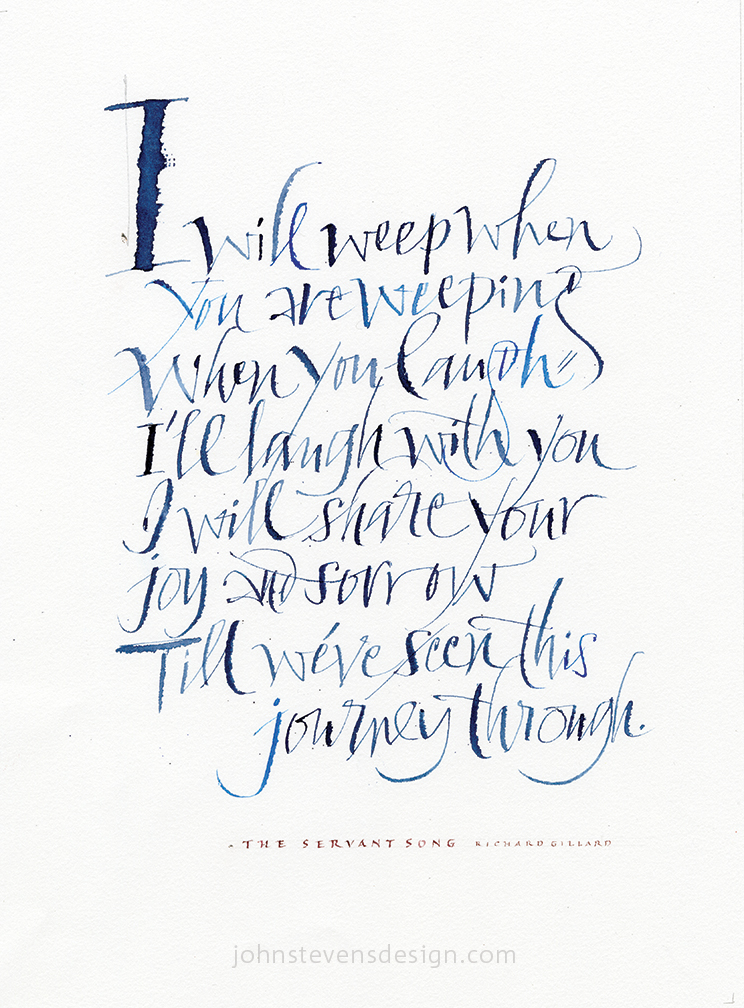 I will weep when
you are weeping
When you laugh
I'll laugh with you
I will share your
joy and sorrow
Till we've seen this
journey through.
- THE SERVANT SONG RICHARD GILLARD
johnstevensdesign.com